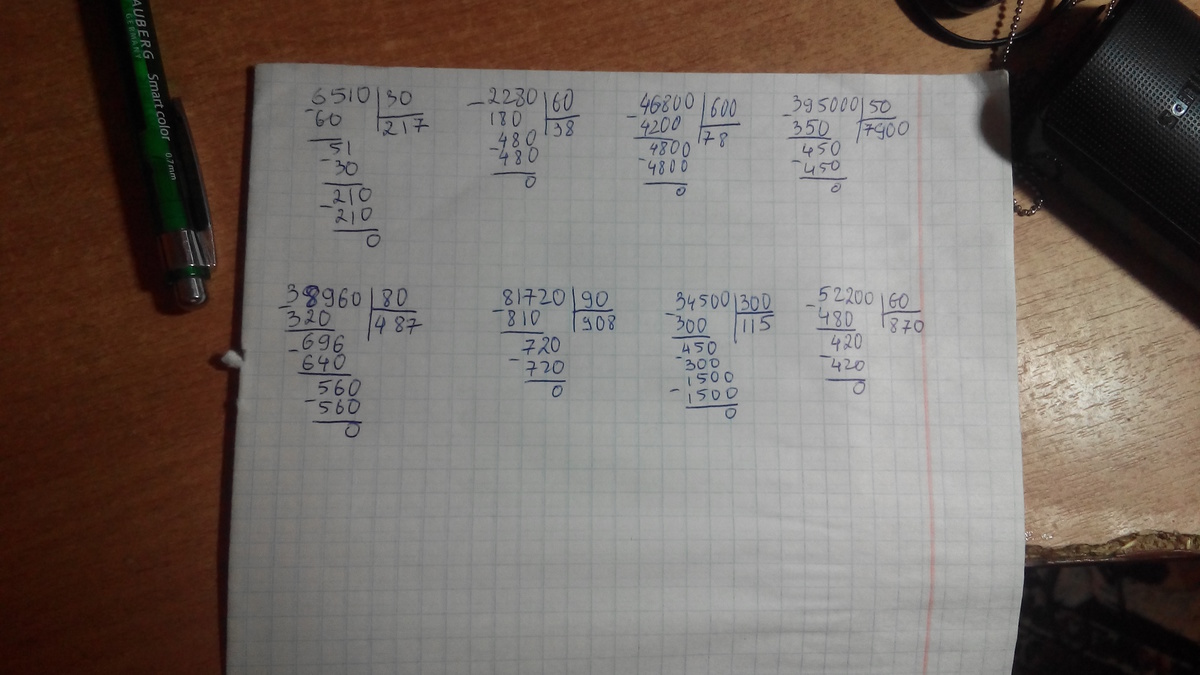 AUBERG
GERMANY
Smart color
0.7mm
6510 30
- 60 217
51
- 30
210
- 210
0
- 2280 60
180 38
480
- 480
0
- 46800 600
4200 78
4800
- 4800
0
- 395000 50
350 7900
450
- 450
0
- 38960 80
320 487
- 696
640
560
- 560
0
- 81720 90
810 908
720
- 720
0
- 34500 300
300 115
450
- 300
1500
- 1500
0
- 52200 60
480 870
420
- 420
0